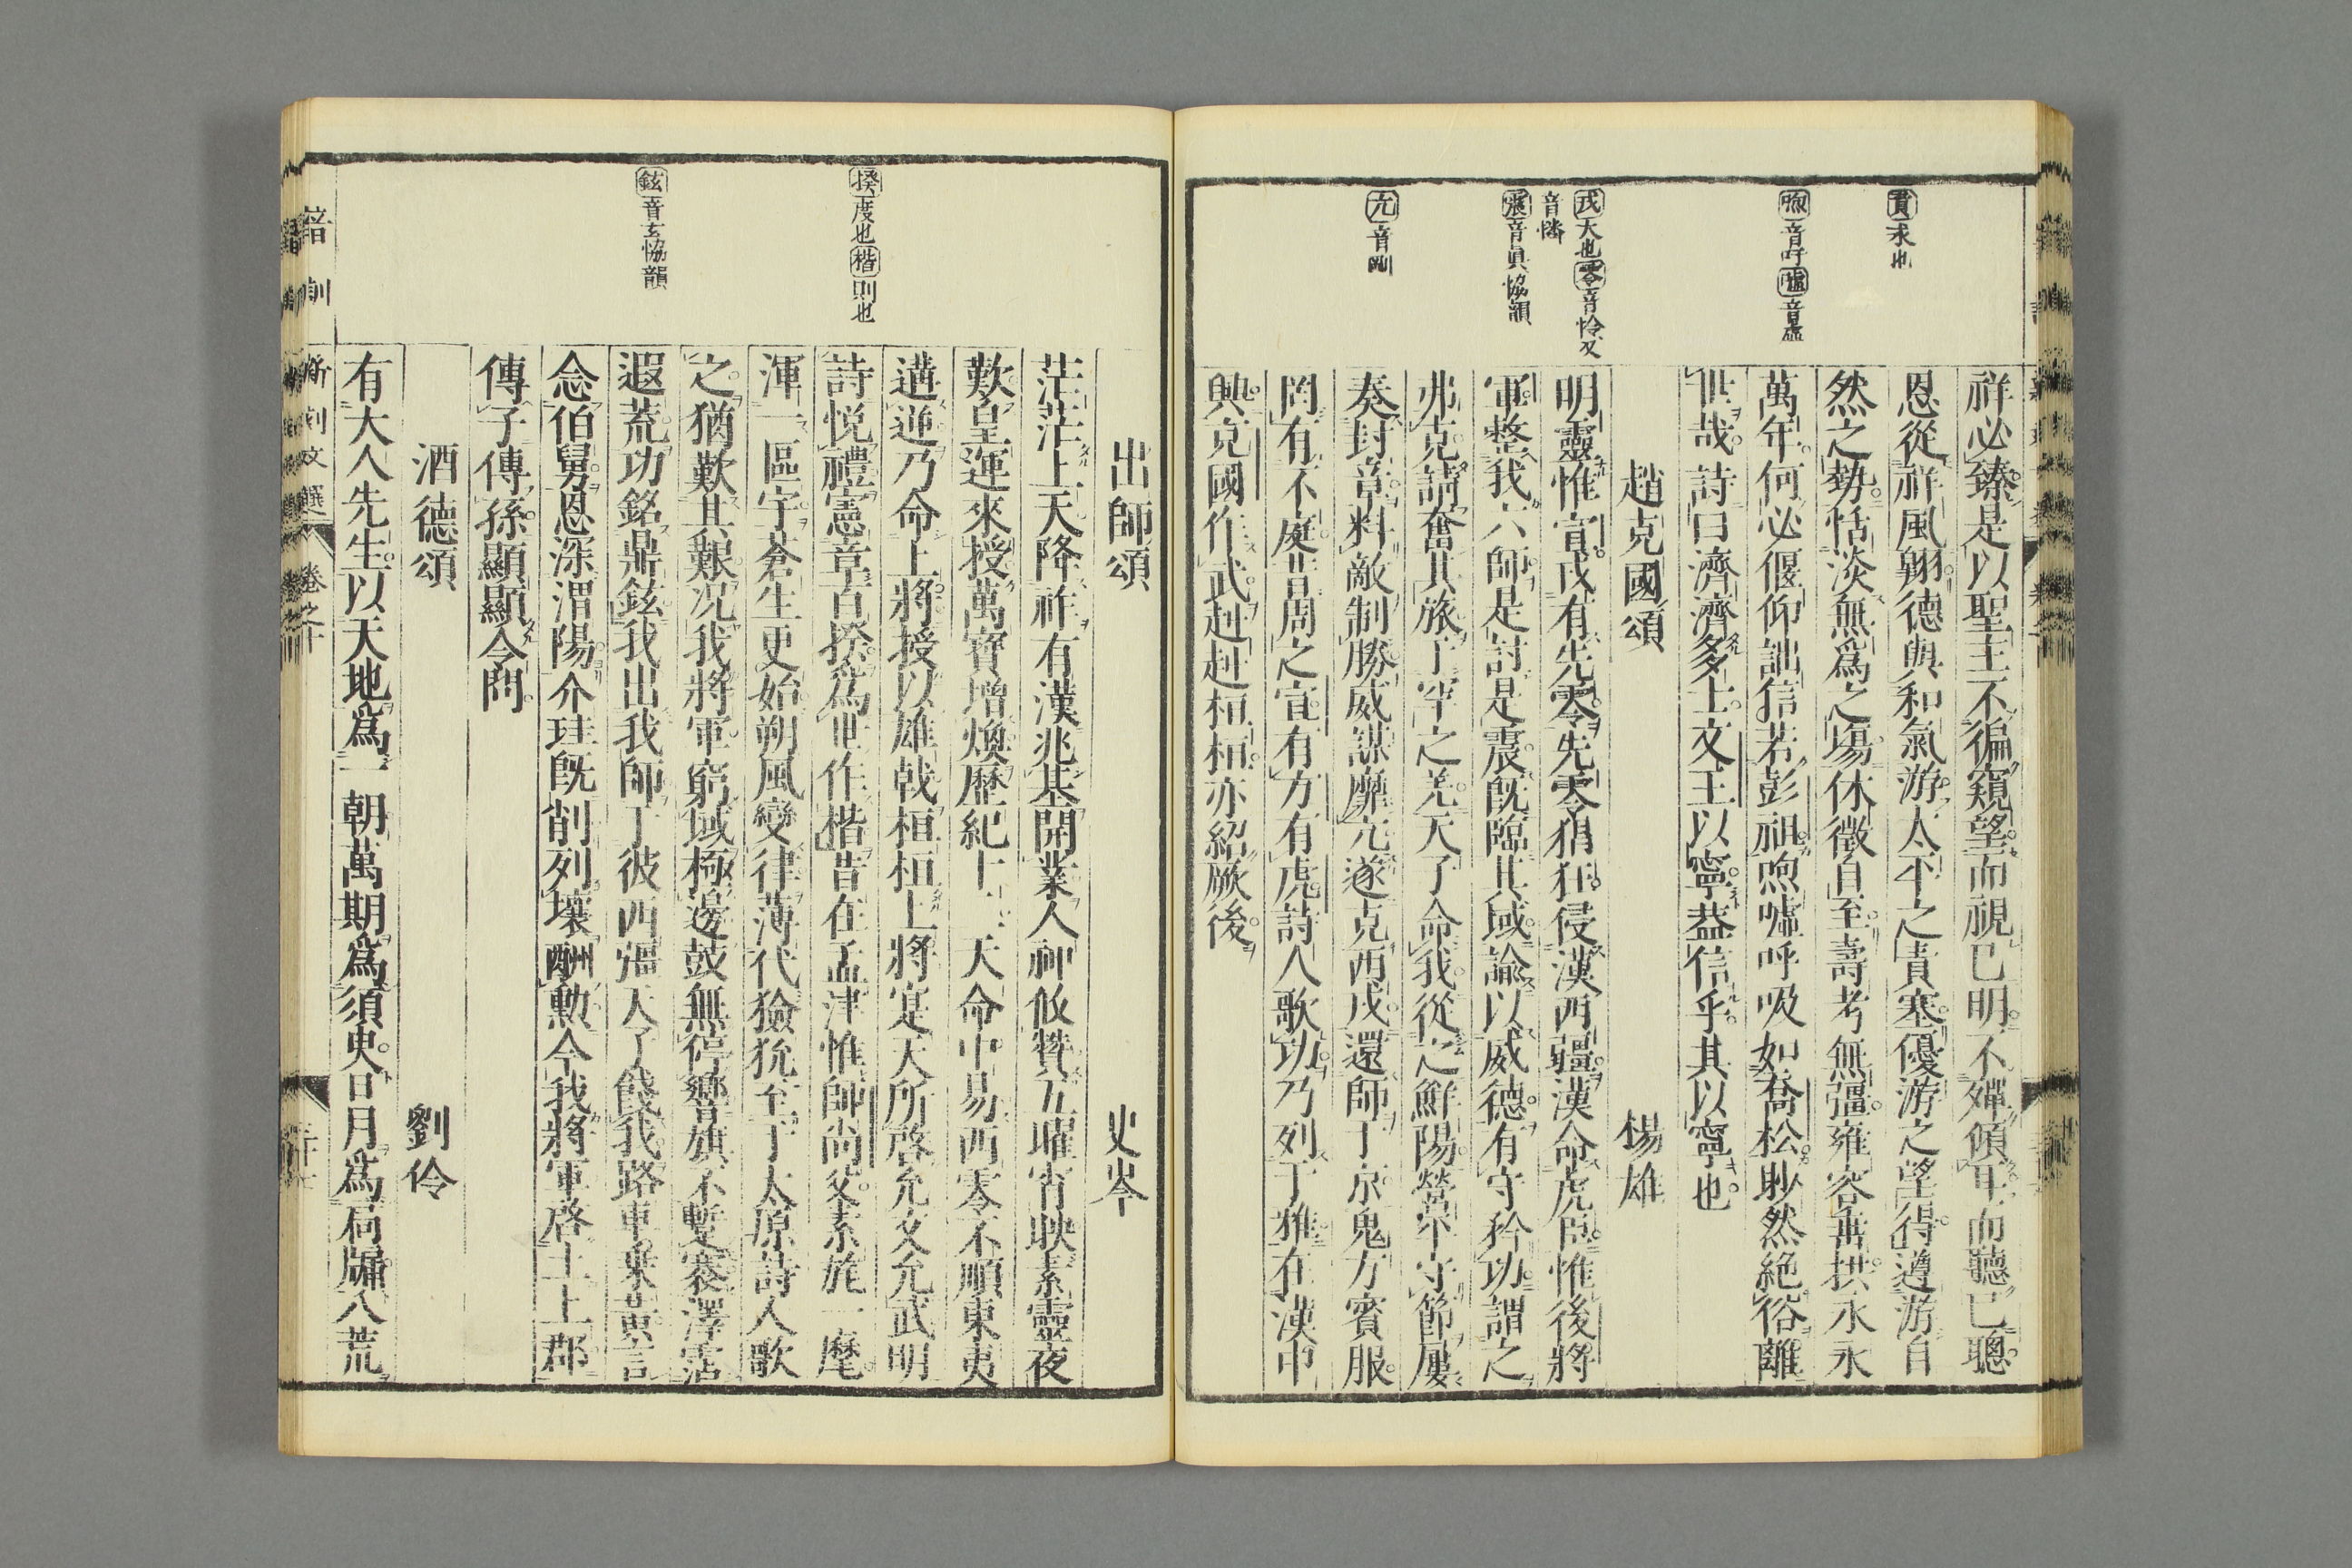 賁釆也
喣音吁噓音虛
戎大也零音怜又
音憐
震音眞協韻
亢音剛
祥必臻是以聖主不徧窺望而視已明不殫傾耳而聽已聰
恩從祥風翱德與和氣游太平之責塞優游之望得遵游自
然之勢恬淡無爲之場休徵自至壽考無疆雍容垂拱永永
萬年何必偃仰詘信若彭祖喣噓呼吸如喬松眇然絕俗離
世哉詩曰濟濟多士文王以寧葢信乎其以寧也
趙克國頌 楊雄
明靈惟宣戎有先零先零猖狂侵漢西疆漢命虎臣惟後將
軍整我六師是討是震旣臨其域諭以威德有守矜功謂之
弗克請奮其旅于罕之羌天子命我從之鮮陽營平守節屢
奏封章料敵制勝威謀靡亢遂克西戎還師于京鬼方賓服
罔有不庭昔周之宣有方有虎詩人歌功乃列于雅在漢中
興克國作武赳赳桓桓亦紹厥後
揆度也楷則也
鉉音玄協韻
出師頌 史岑
茫茫上天降祚有漢兆基開業人神攸贊五曜宵映素靈夜
歎皇運來授萬寶增煥歷紀十二天命中易西零不順東夷
遘逆乃命上將授以雄戟桓桓上將寔天所啓允文允武明
詩悅禮憲章百揆爲世作楷昔在孟津惟師尚父素旄一麾
渾一區宇蒼生更始朔風變律薄伐獫狁至于太原詩人歌
之猶歎其艱況我將軍窮域極邊鼓無停響旗不蹔褰澤霑
遐荒功銘鼎鉉我出我師于彼西疆天子餞我路車乘黃言
念伯舅恩深渭陽介珪旣削列壤酬勳今我將軍啓土上郡
傳子傳孫顯顯令問
酒德頌 劉伶
有大人先生以天地爲一朝萬期爲須臾日月爲扃牖八荒
音訓 新刻文選 卷之十